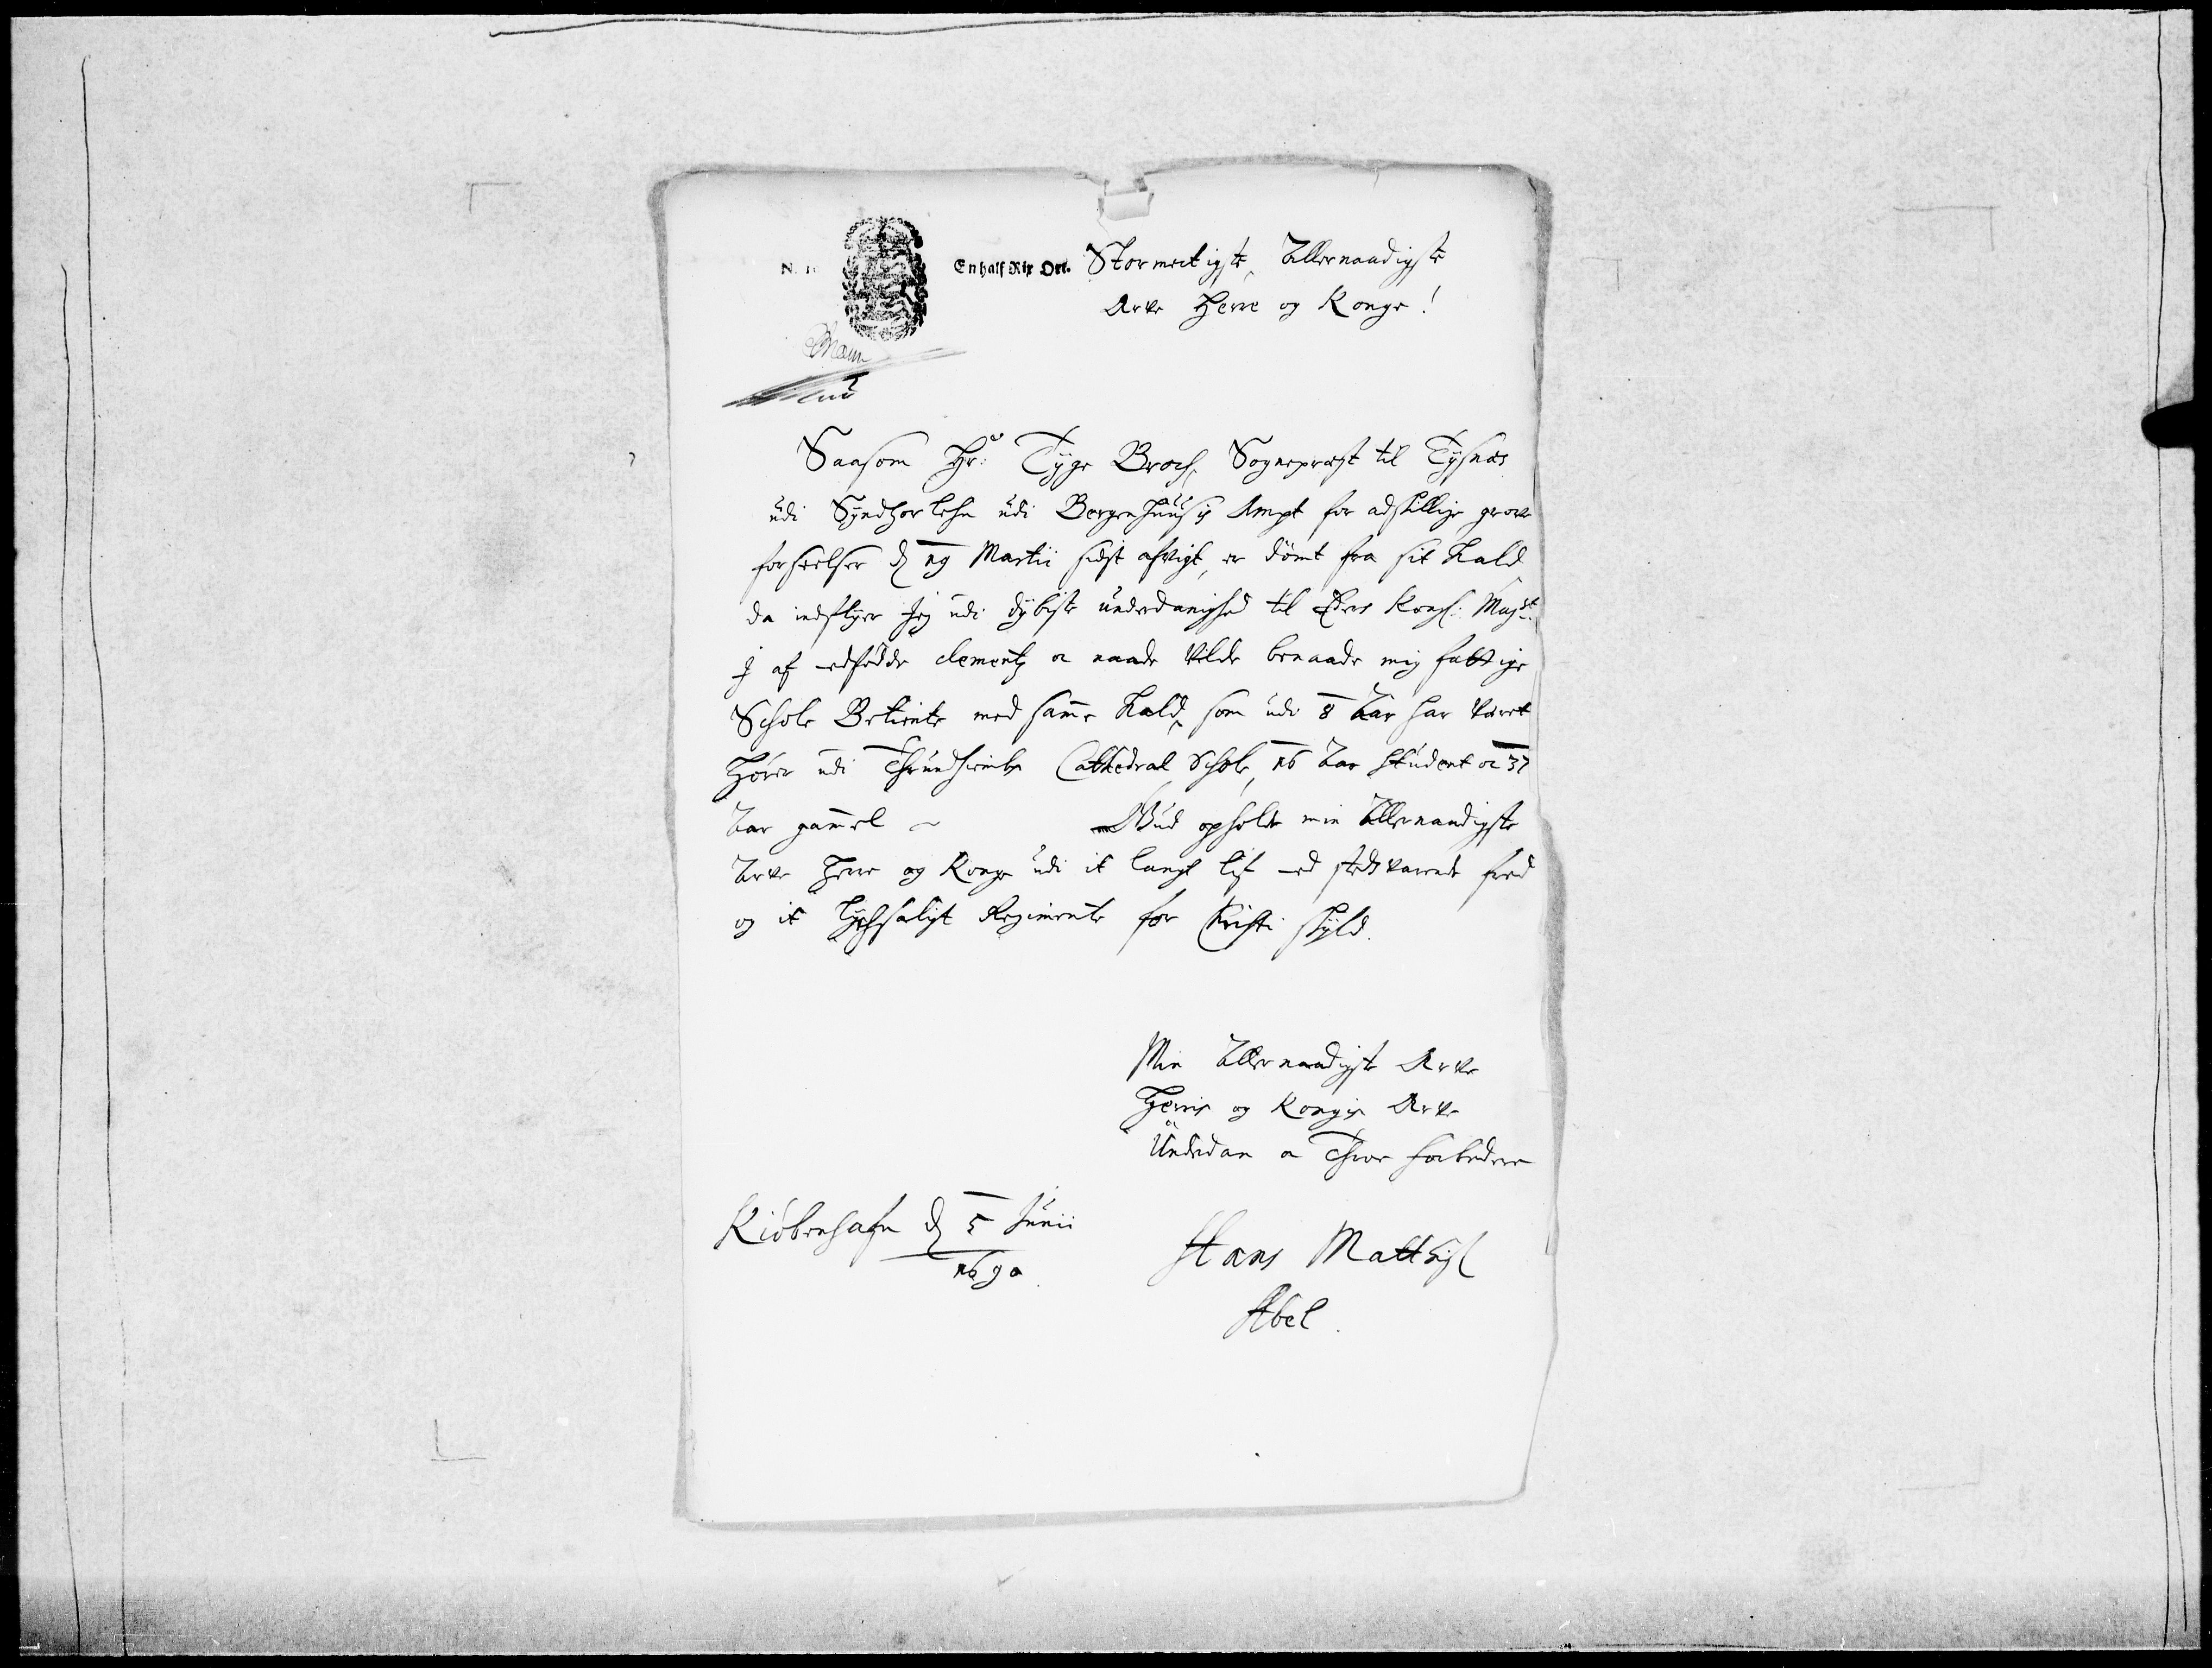 N. 1.
En half Rix Ort. Stormectigste, Allernaadigste
Arve Herre og Konge!
Saasom Hr: Tyge Broch, Sognepræst til Tysnæs
udi Syndhorlehn udi Bergenhuusis Ampt for adskillige grove
forseelser d 19 Martii sidst afvigt, er dömt fra sit Kald
da indflyer Jeg udi dybiste underdanighed til Eders Kongl: Majst:
I af medfödde clementz oc naade Vilde benaade mig fattige
Schole Betiente med samme Kald, som udi 8 Aar har Været
Hörer udi Thrundhiembs Cathedral Schole, 16 Aar Student oc 37
Aar gammel Gud opholde min Allernaadigste
Arve Herre og Konge udi it langt lif med stedtzvarende fred
og it lychsaligt Regimente for Christi skyld.
Min Allernaadigste Arve
Herris og Kongis Arve
Underdan oc Throe forbedere
Kiöbenhafn d 5 Junii
1690
Hans Matthisl
Abel.